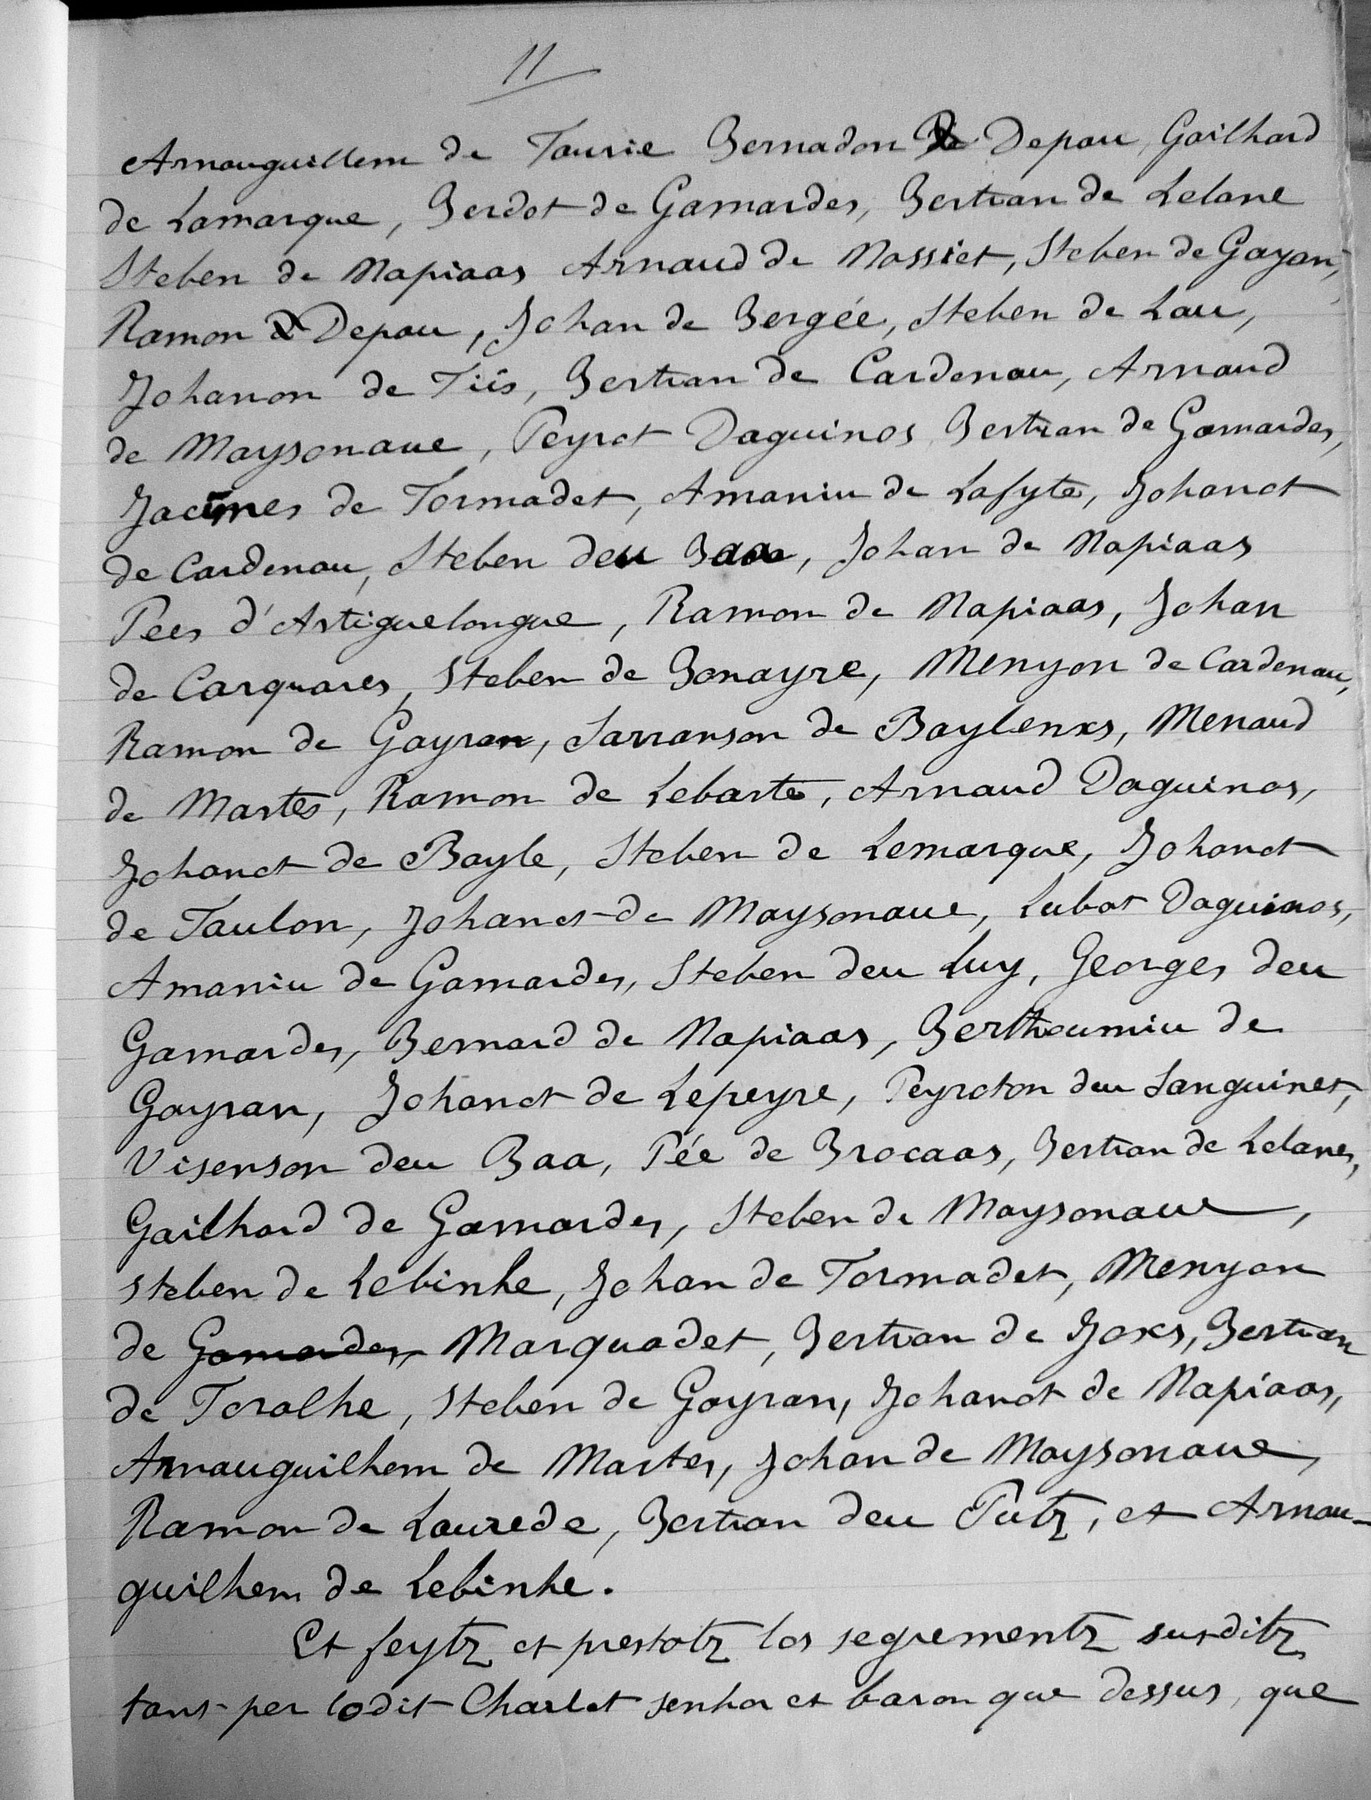 11
Arnauguillem de Taurie Bernadon De Depau, Gailhard
de Lamarque, Berdot de Gamardes, Bertran de Lelane
Steben de Napiaas Arnaud de Nassiet, Steben de Gayan,
Ramon D Depau, Johan de Bergée, Steben de Lau,
Johanon de Tiis, Bertran de Cardenau, Arnaud
de Maysonaue, Peyrot Daguinos, Bertran de Gamardes,
Jacmes de Tormadet, Amaniu de Lafyte, Johanot
de Cardenau, Steben deu Baa, Johan de Napiaas
Pees d'Artiguelongue, Ramon de Napiaas, Johan
de Carquares, Steben de Bonayre, Menyon de Cardenau,
Ramon de Gayran, Sarranson de Baylenxs, Menaud
de Martes, Ramon de Lebarte, Arnaud Daguinos,
Johanot de Bayle, Steben de Lemarque, Johanot
de Taulon, Johanot de Maysonaue, Lubat Daguinos,
Amaniu de Gamardes, Steben deu Luy, Georges deu
Gamardes, Bernard de Napiaas, Berthoumiu de
Gayran, Johanot de Lepeyre, Peyroton deu Sanguinet,
Visenson deu Baa, Pée de Brocaas, Bertran de Lelanes,
Gailhard de Gamardes, Steben de Maysonaue,
Steben de Lebinhe, Johan de Tormadet, Menyon
de Gamardes, Marquadet, Bertran de Joxs, Bertran
de Toralhe, Steben de Gayran, Johanot de Napiaas,
Arnauguilhem de Martes, Johan de Maysonaue,
Ramon de Laurede, Bertran deu Putz, et Arnau-
guilhem de Lebinhe.
Et feytz et prestatz los segrementz susditz
tant per lodit Charlet senhor et baron que dessus, que